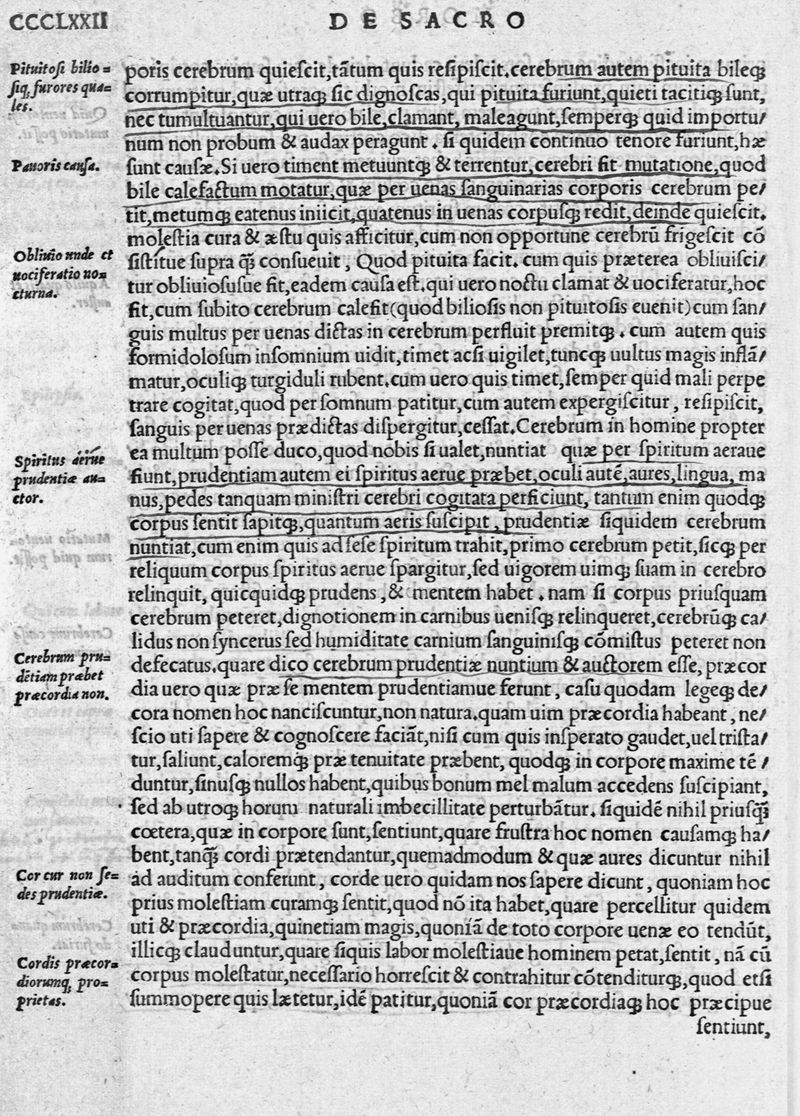 CCCLXXII
DE SACRO
Pituitosi bilio=
siq; furores qua=
les.
poris cerebrum quiescit, tãtum quis resipiscit. cerebrum autem pituita bileq;
corrumpitur, quæ utraq; sic dignoscas, qui pituita furiunt, quieti tacitiq; sunt,
nec tumultuantur, qui uero bile, clamant, maleagunt, semperq; quid importu/
num non probum & audax peragunt. si quidem continuo tenore furiunt, hæ
Pauoris causa.
sunt causæ. Si uero timent metuuntq; & terrentur, cerebri fit mutatione, quod
bile calefactum motatur, quæ per uenas sanguinarias corporis cerebrum pe/
tit, metumq; eatenus iniicit, quatenus in uenas corpusq; redit, deinde quiescit.
molestia cura & æstu quis afficitur, cum non opportune cerebrũ frigescit cõ
Obliuio unde et
uociferatio no=
cturna.
sistitue supra q̃ consueuit, Quod pituita facit. cum quis præterea obliuisci/
tur obliuiosusue fit, eadem causa est. qui uero noctu clamat & uociferatur, hoc
fit, cum subito cerebrum calefit (quod biliosis non pituitosis euenit) cum san/
guis multus per uenas dictas in cerebrum perfluit premitq;. cum autem quis
formidolosum insomnium uidit, timet acsi uigilet, tuncq; uultus magis inflã/
matur, oculiq; turgiduli rubent. cum uero quis timet, semper quid mali perpe
trare cogitat, quod per somnum patitur, cum autem expergiscitur, resipiscit,
sanguis per uenas prædictas dispergitur, cessat. Cerebrum in homine propter
ea multum posse duco, quod nobis si ualet, nuntiat quæ per spiritum aeraue
Spiritus aerue
prudentiæ au=
ctor.
fiunt, prudentiam autem ei spiritus aerue præbet, oculi autẽ, aures, lingua, ma
nus, pedes tanquam ministri cerebri cogitata perficiunt, tantum enim quodq;
corpus sentit sapitq;, quantum aeris suscipit, prudentiæ siquidem cerebrum
nuntiat, cum enim quis ad sese spiritum trahit, primo cerebrum petit, sicq; per
reliquum corpus spiritus aerue spargitur, sed uigorem uimq; suam in cerebro
relinquit, quicquidq; prudens, & mentem habet. nam si corpus priusquam
cerebrum peteret, dignotionem in carnibus uenisq; relinqueret, cerebrũq; ca/
lidus non syncerus sed humiditate carnium sanguinisq; cõmistus peteret non
Cerebrum pru=
dẽtiam præbet
præcordia non.
defecatus. quare dico cerebrum prudentiæ nuntium & auctorem esse, præcor
dia uero quæ præ se mentem prudentiamue ferunt, casu quodam legeq; de/
cora nomen hoc nanciscuntur, non natura. quam uim præcordia habeant, ne/
scio uti sapere & cognoscere faciãt, nisi cum quis insperato gaudet, uel trista/
tur, saliunt, caloremq; præ tenuitate præbent, quodq; in corpore maxime tẽ/
duntur, sinusq; nullos habent, quibus bonum mel malum accedens suscipiant,
sed ab utroq; horum naturali imbecillitate perturbãtur. siquidẽ nihil priusq̃
cœtera, quæ in corpore sunt, sentiunt, quare frustra hoc nomen causamq; ha/
bent, tanq̃ cordi prætendantur, quemadmodum & quæ aures dicuntur nihil
Cor cur non se=
des prudentiæ.
ad auditum conferunt, corde uero quidam nos sapere dicunt, quoniam hoc
prius molestiam curamq; sentit, quod nõ ita habet, quare percellitur quidem
uti & præcordia, quinetiam magis, quoniã de toto corpore uenæ eo tendũt,
illicq; clauduntur, quare siquis labor molestiaue hominem petat, sentit, nã cũ
Cordis præcor=
diorumq; pro=
prietas.
corpus molestatur, necessario horrescit & contrahitur cõtenditurq;, quod etsi
summopere quis lætetur, idẽ patitur, quoniã cor præcordiaq; hoc præcipue
sentiunt,